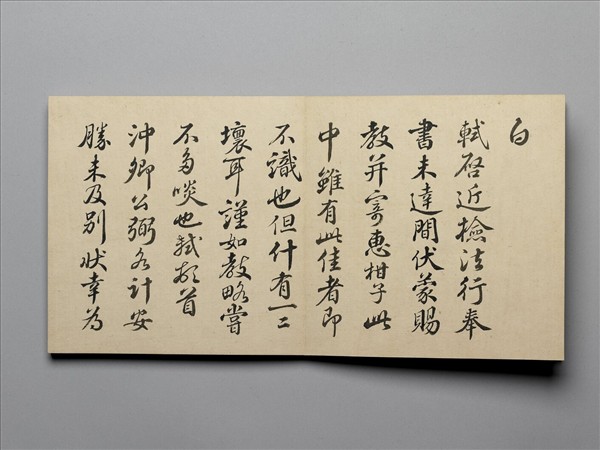 白
軾啓近撿法行奉
書未達間伏蒙賜
教并寄惠柑子此
中雖有此佳者即
不識也但什有一二
壞耳謹如教略嘗
不多啖也軾頓首
沖卿公弼各計安
勝未及别状幸為